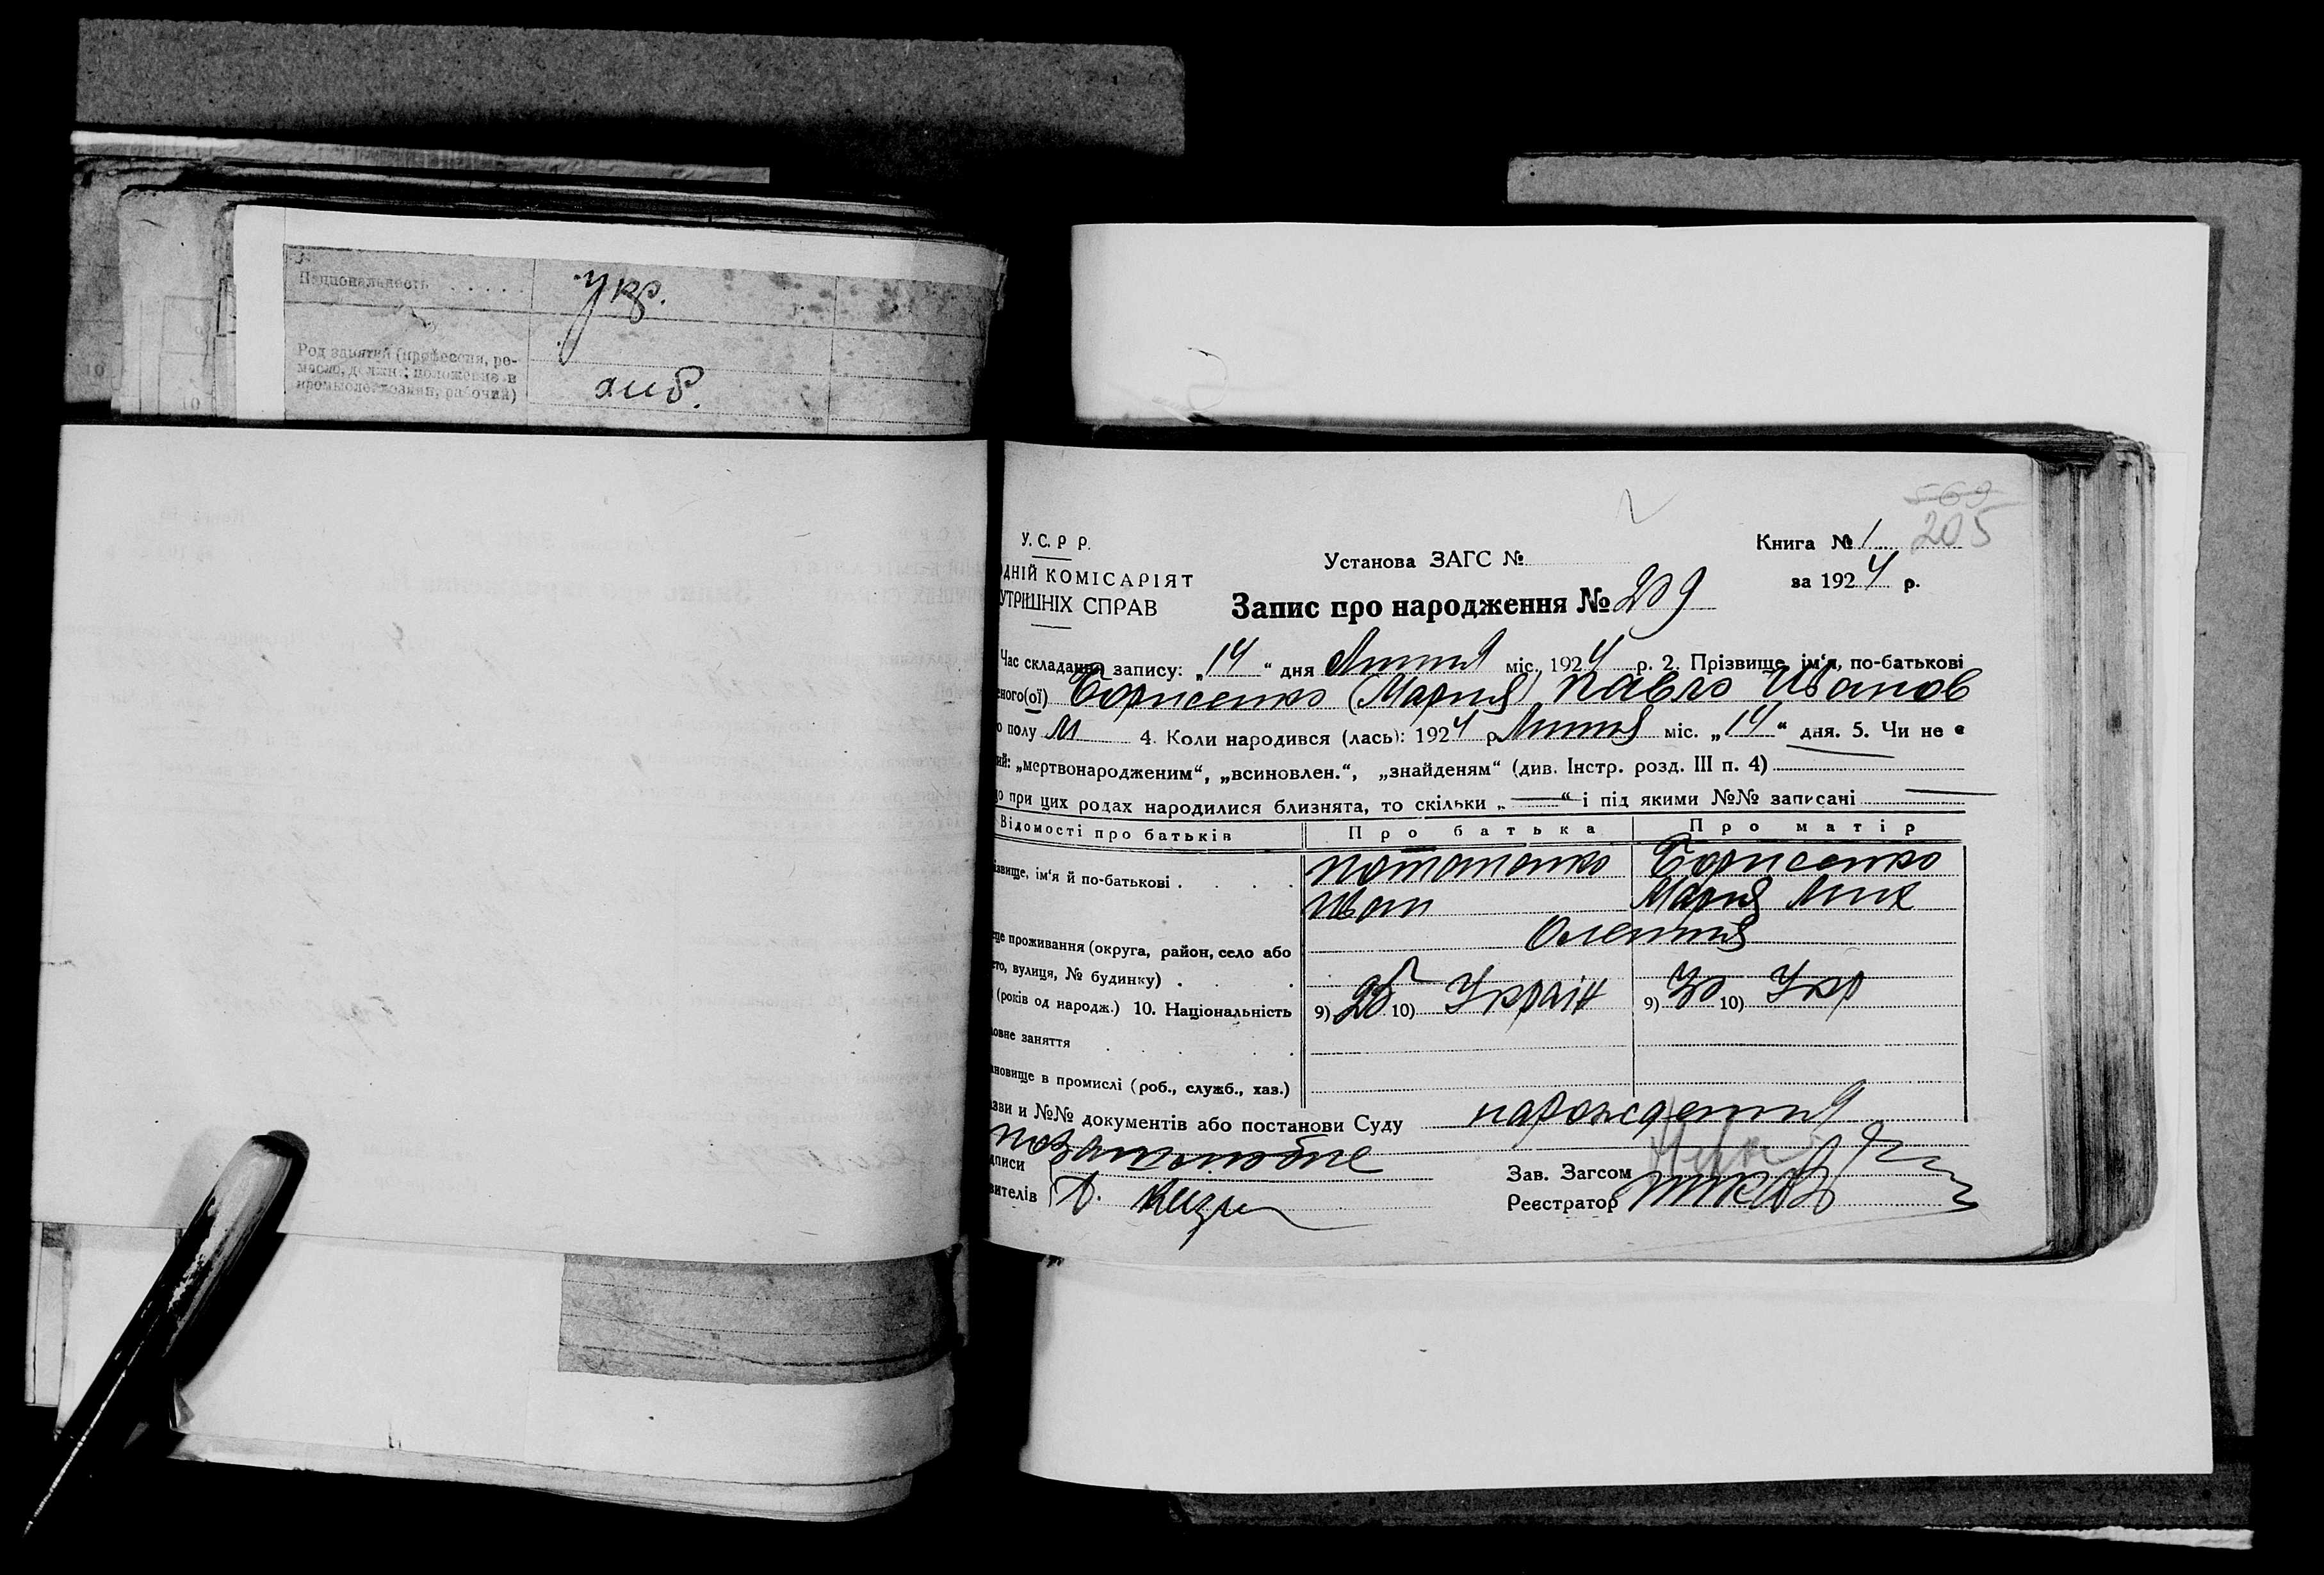 Национальность . . . . .
укр.
Род занятий (профессия, ре-
10
10
У.С.Р Р.
ДНІЙ КОМІСАРІЯТ
УТРІШНІХ СПРАВ
Установа ЗАГС №
Запис про народження № 209
Книга № 1
569
205
за 1924 р.
Час складання запису: „14“ дня Липня міс. 1924 р. 2. Прізвище, ім'я, по-батькові
еного(ої) Борисенко (Мария) Павло Иванов
о полу М 4. Коли народився (лась): 1924 р. Липня міс. „14“ дня. 5. Чи не є
ий: „мертвонародженим“, „всиновлен.“, „знайденям“ (див. Інстр. розд. III п. 4)
о при цих родах народилися близнята, то скільки „—“ і під якими №№ записані —
Відомості про батьків
Про батька
Про матір
ізвище, ім'я й по-батькові . . . .
Потапенко
Иван
Борисенко
Мария Мих
це проживання (округа, район, село або
то, вулиця, № будинку) . . .
(років од народж.) 10. Національність
9) 10) Україн
9) 30 10) Укр
овне заняття . . . .
ановище в промислі (роб., служб., хаз.)
зви и №№ документів або постанови Суду
нарождення
позашлюбне
дписи
вителів
Зав. Загсом
Реєстратор